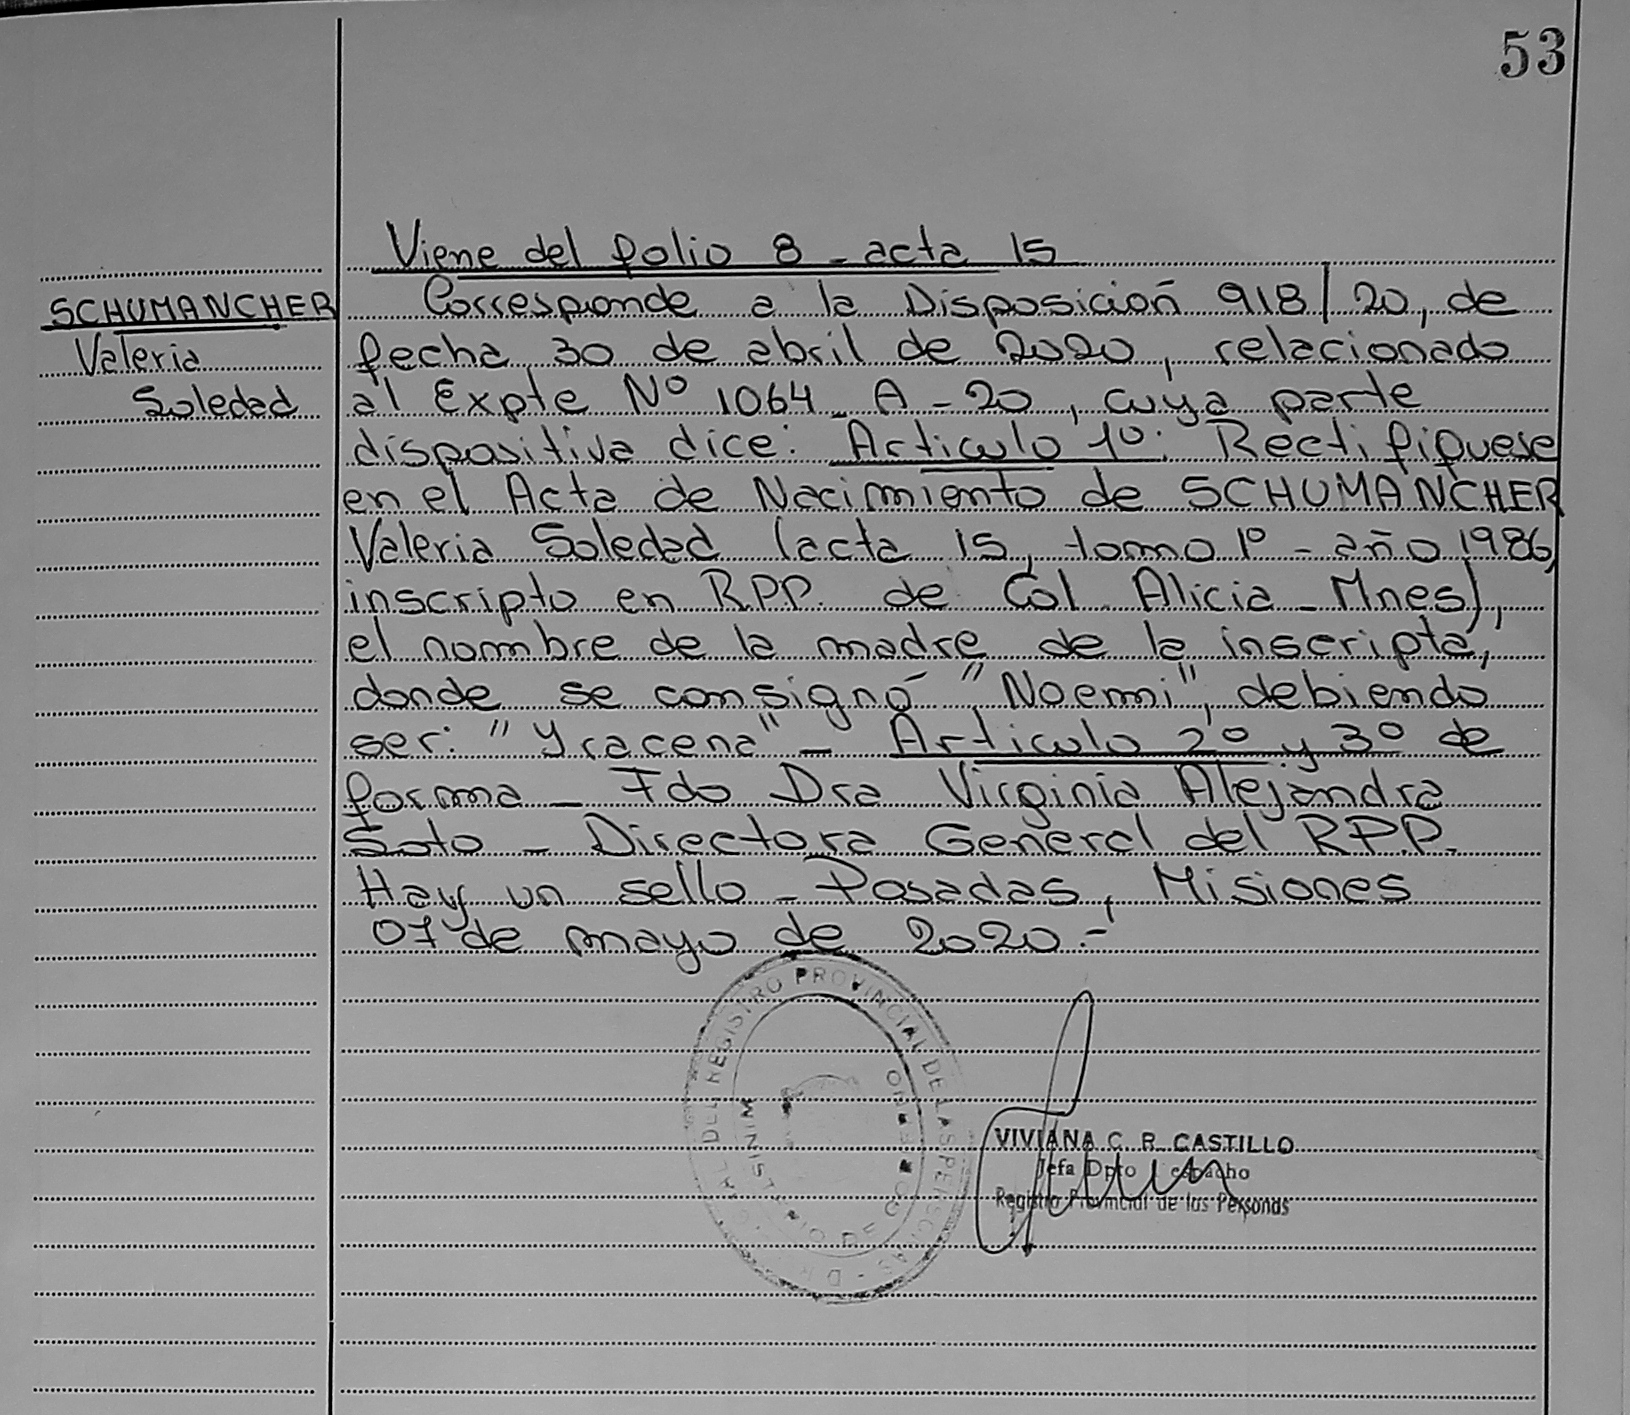 53
Viene del folio 8 - acta 15
SCHUMANCHER
Valeria
Soledad
Corresponde a la Disposición 918/20, de
fecha 30 de abril de 2020, relacionado
al Expte Nº 1064 - A - 20, cuya parte
dispositiva dice: Articulo 1º: Rectifiquese
en el Acta de Nacimiento de SCHUMANCHER
Valeria Soledad (acta 15, tomo 1º - año 1986,
inscripto en R.P.P. de Col. Alicia - Mnes),
el nombre de la madre de la inscripta,
donde se consignó "Noemi", debiendo
ser: "Yracena" - Articulo 2º y 3º de
forma - Fdo Dra Virginia Alejandra
Soto - Directora General del R.P.P.
Hay un sello - Posadas, Misiones
07 de mayo de 2020.-
DEL REGISTRO PROVINCIAL DE LAS PERSONAS
MINISTERIO DE GOBIERNO
VIVIANA C. R. CASTILLO
Jefa Dpto
Registro Provincial de las Personas